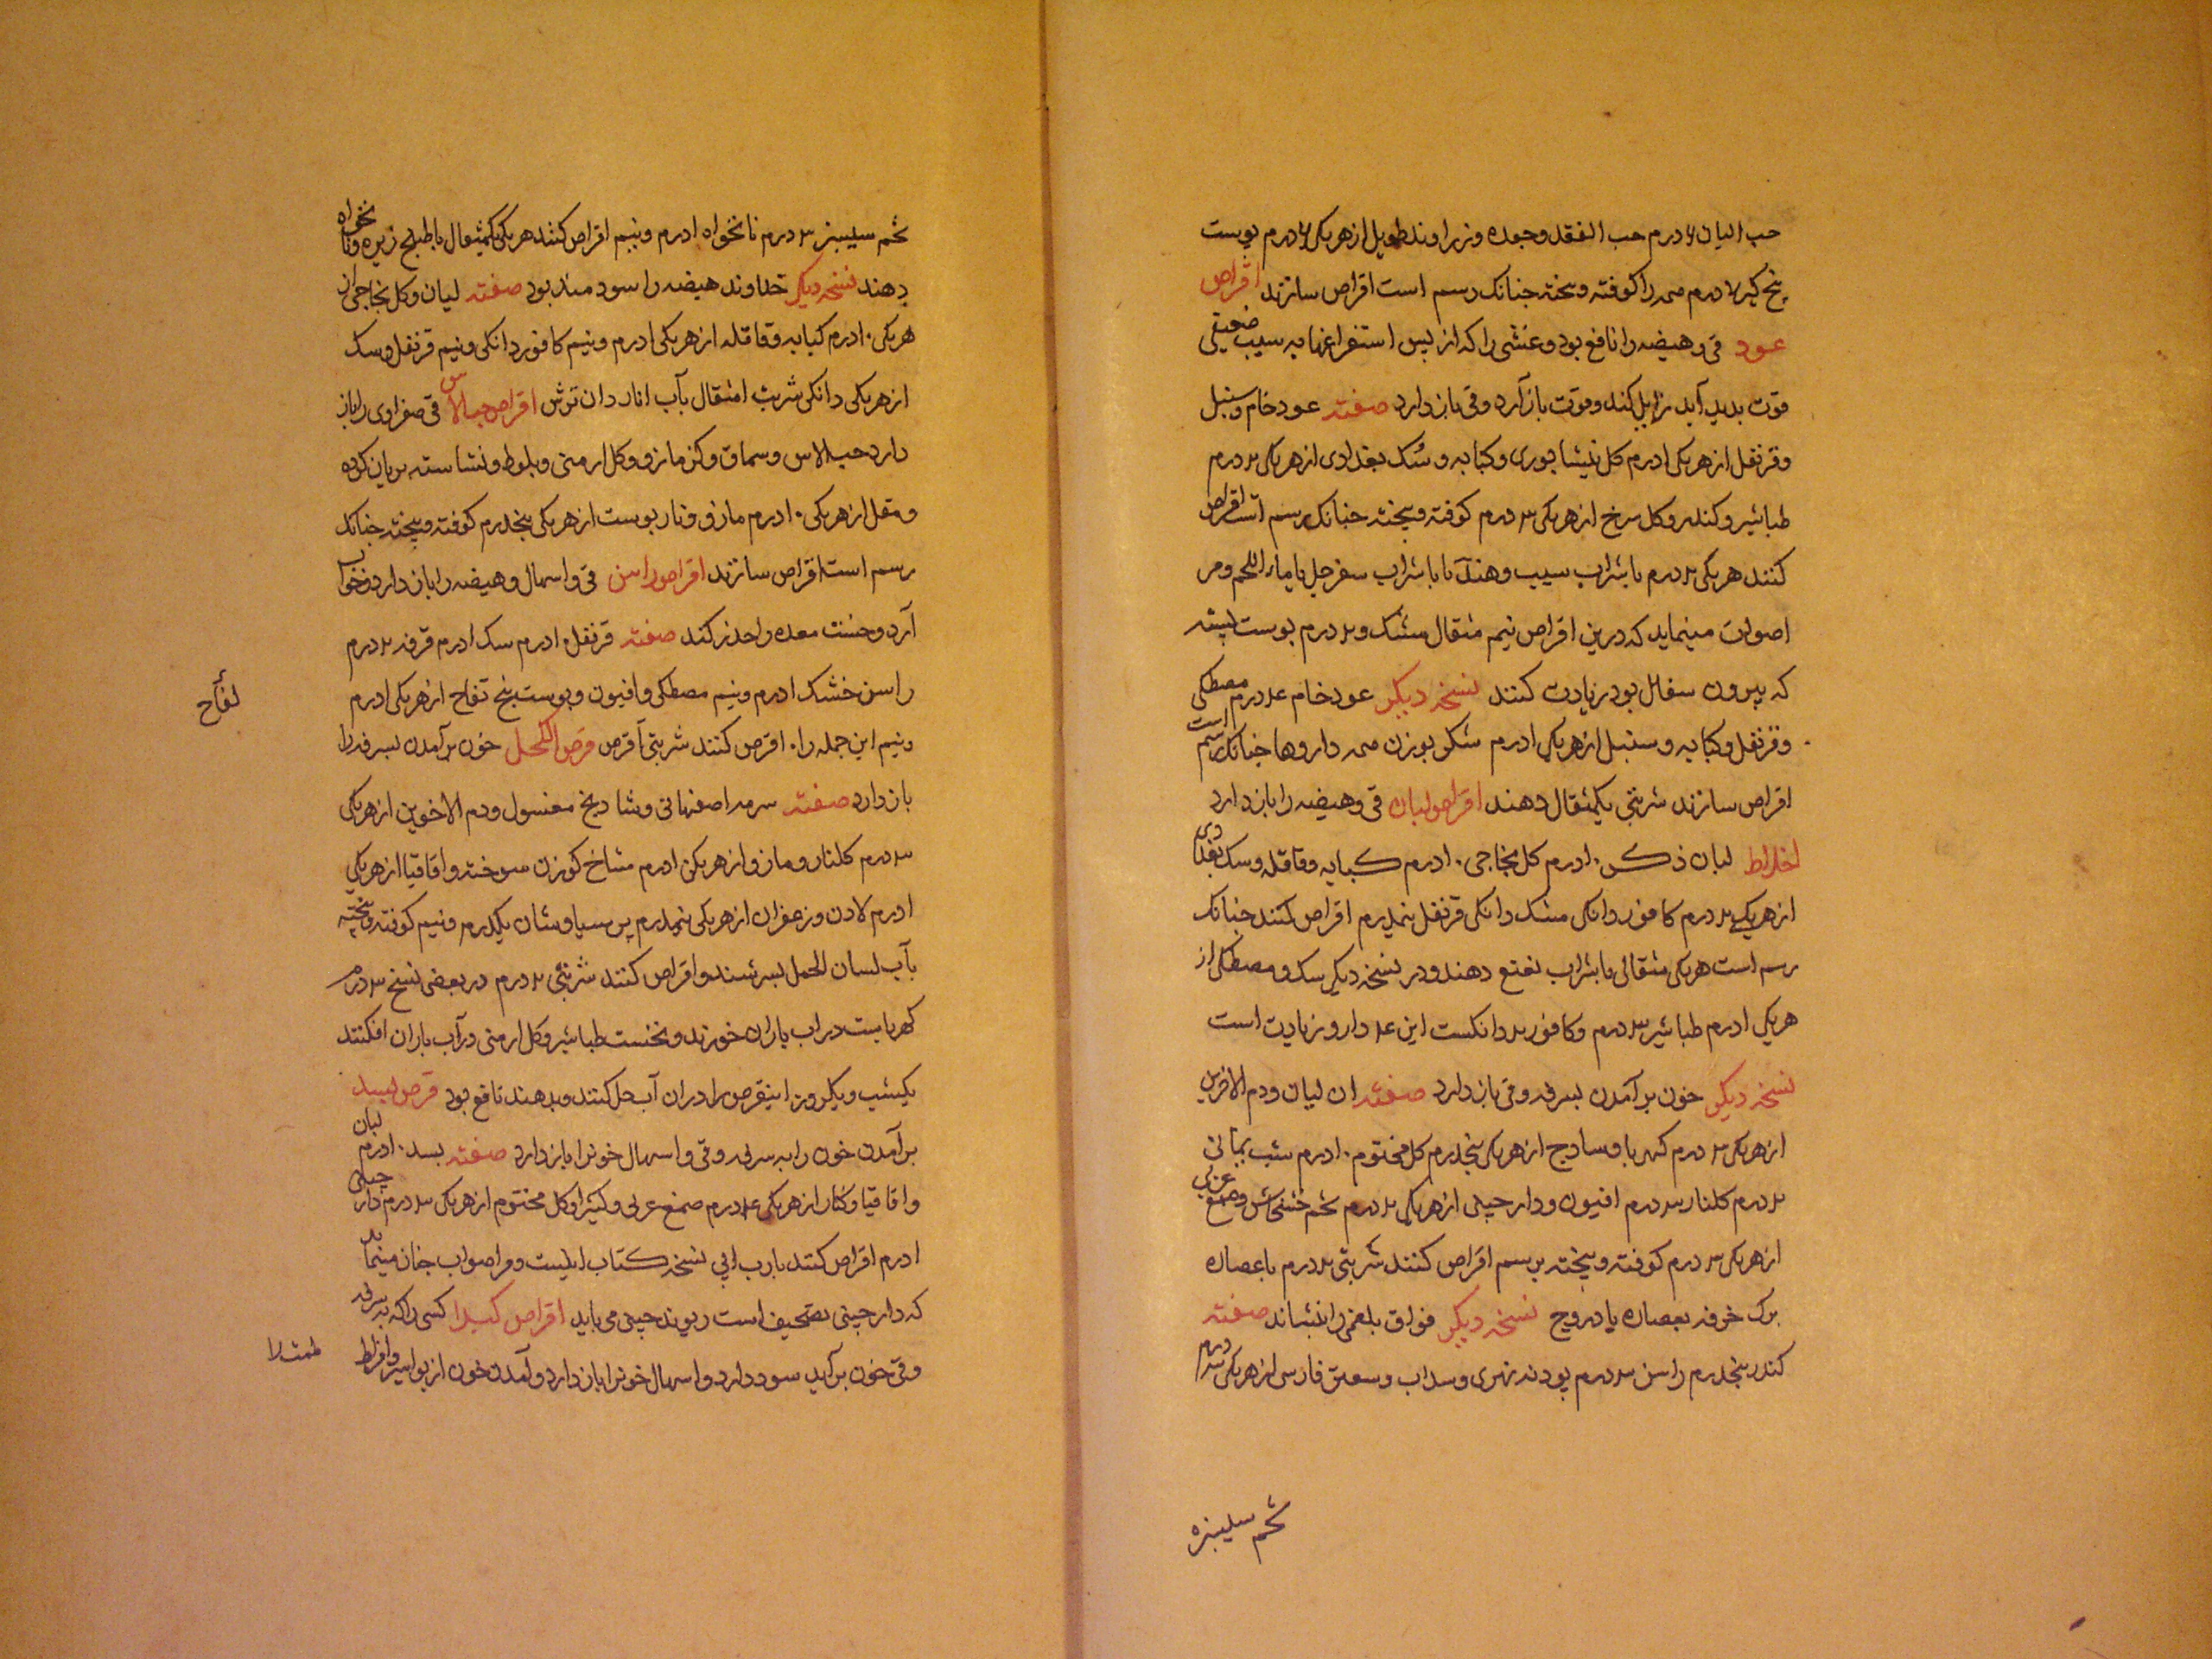 حب البان ٧ درم حب الفقد وجعده وزراوند طویل از هریکی ٧ درم پوست
بیخ کبر ٧ درم همه را کوفته و پخته جنانک رسم است اقراص سازند اقراص
عود قی و هیضه را نافع بود و غشی را که از پس استفراغها به سبب ضعیفی
قوت بدید آید زایل کند و قوت باز آرد و قی باز دارد صفته عود خام و سنبل
و قرنفل از هریکی ١ درم کل نیشابوری و کبابه و سک بغدادی از هریکی ٢ درم
طباشیر و کندر و کل سرخ از هریکی ٣ درم کوفته و بیخته جنانک رسم است اقراص
کنند هریکی ٢ درم با شراب سیب و هند آنا با شراب سفرجل یا ماء اللحم و مر
اصواب مینماید که درین اقراص نیم مثقال مشک و ٢ درم پوست پسته
که بیرون سفال بود زیادت کنند نسخه دیکر عود خام ٤ درم مصطکی
و قرنفل و کبابه و سنبل از هریکی ١ درم شکر بوزن همه داروها جنانک رسم است
اقراص سازند شربتی یکمثقال دهند اقراص لبان قی و هیضه را باز دارد
اخلاط لبان ذکر ١٠ درم کل بخاجی ١٠ درم کبابه و قاقله و سک بغدادی
از هریکی ٢ درم کافور دانکی مشک دانکی قرنفل نیمدرم اقراص کنند جنانک
رسم است هریکی مثقالی با شراب نعنع دهند و در نسخه دیکر سک و مصطکی از
هریکی ١ درم طباشیر ٣ درم و کافور ٢ دانکست این ٤ دارو زیادت است
نسخه دیکر خون بر آمدن بسرفه و قی باز دارد صفته ان لبان و دم الاخوین
از هریکی ٢ درم کهربا و سادج از هریکی پنجدرم کل مختوم ١٠ درم شب یمانی
٢ درم کلنار ٣ درم افیون و دارچینی از هریکی ٢ درم تخم خشخاش و صمغ عربی
از هریکی ٣ درم کوفته و بیخته برسم اقراص کنند شربتی ٢ درم با عصاره
برک خرفه بعصاره بادروج نسخه دیکر فواق بلغمی را بنشاند صفته
کندر پنجدرم راسن ٣ درم پودنه نهری و سداب و سعتر فارسی از هریکی ٣ درم
تخم سلیبزه
تخم سیسبز ٣ درم نانخواه ١ درم و نیم اقراص کنند هریکی یکمثقال با طبیخ زیره و نانخواه
دهند نسخه دیکر خداوند هیضه را سودمند بود صفته لبان و کل بخاجی از
هریکی ١٠ درم کبابه و قاقله از هریکی ١ درم و نیم کافور دانکی و نیم قرنفل و سک
از هریکی دانکی شربت ١ مثقال بآب انار دان ترش اقراص حب الاس قی صفراوی را باز
دارد حب الاس و سماق و کزمازو و کل ارمنی و بلوط و نشاسته بریان کرده
و مقل از هریکی ١٠ درم مازو و نار پوست از هریکی پنجدرم کوفته و بیخته جنانک
رسم است اقراص سازند اقراص راسن قی و اسهال و هیضه را باز دارد و خواب
آرد و خشت معده را حذر کند صفته قرنفل ١ درم سک ١ درم قرفه ٢ درم
راسن خشک ١ درم و نیم مصطکی و افیون و پوست بیخ تفاح از هریکی ١ درم
لفاح
و نیم این جمله را ١٠ اقرص کنند شربتی ١ قرص قرص الکحل خون بر آمدن بسرفه را
باز دارد صفته سرمه اصفهانی و شادنج مغسول و دم الاخوین از هریکی
٣ درم کلنار و مازو از هریکی ١ درم شاخ کوزن سوخته و اقاقیا از هریکی
١ درم لادن و زعفران از هریکی نیمدرم پر سیاوشان یکدرم و نیم کوفته و بیخته
بآب لسان الحمل بسرشند و اقراص کنند شربتی ٢ درم در بعضی نسخ ٣ درم
کهرباست در اب باران خورند و نخست طباشیر و کل ارمنی در آب باران افکنند
یکشب و یکروز اینقرص را در ان آب حل کنند و بدهند نافع بود قرص بسد
بر آمدن خون را بسرفه و قی و اسهال خونرا باز دارد صفته بسد ١٠ درم لبان
و اقاقیا و کنار از هریکی ٤ درم صمغ عربی و کتیرا و کل مختوم از هریکی ٣ درم دار چینی
١ درم اقراص کنند بآرب ابی نسخه کتاب اینست و مر اصواب جنان مینماید
که دارچینی تصحیف است ریوند چینی می باید اقراص کهربا کسی را که بسرفه
و قی خون برآید سود دارد و اسهال خونرا باز دارد و آمدن خون از بواسیر و افراط
طمث را